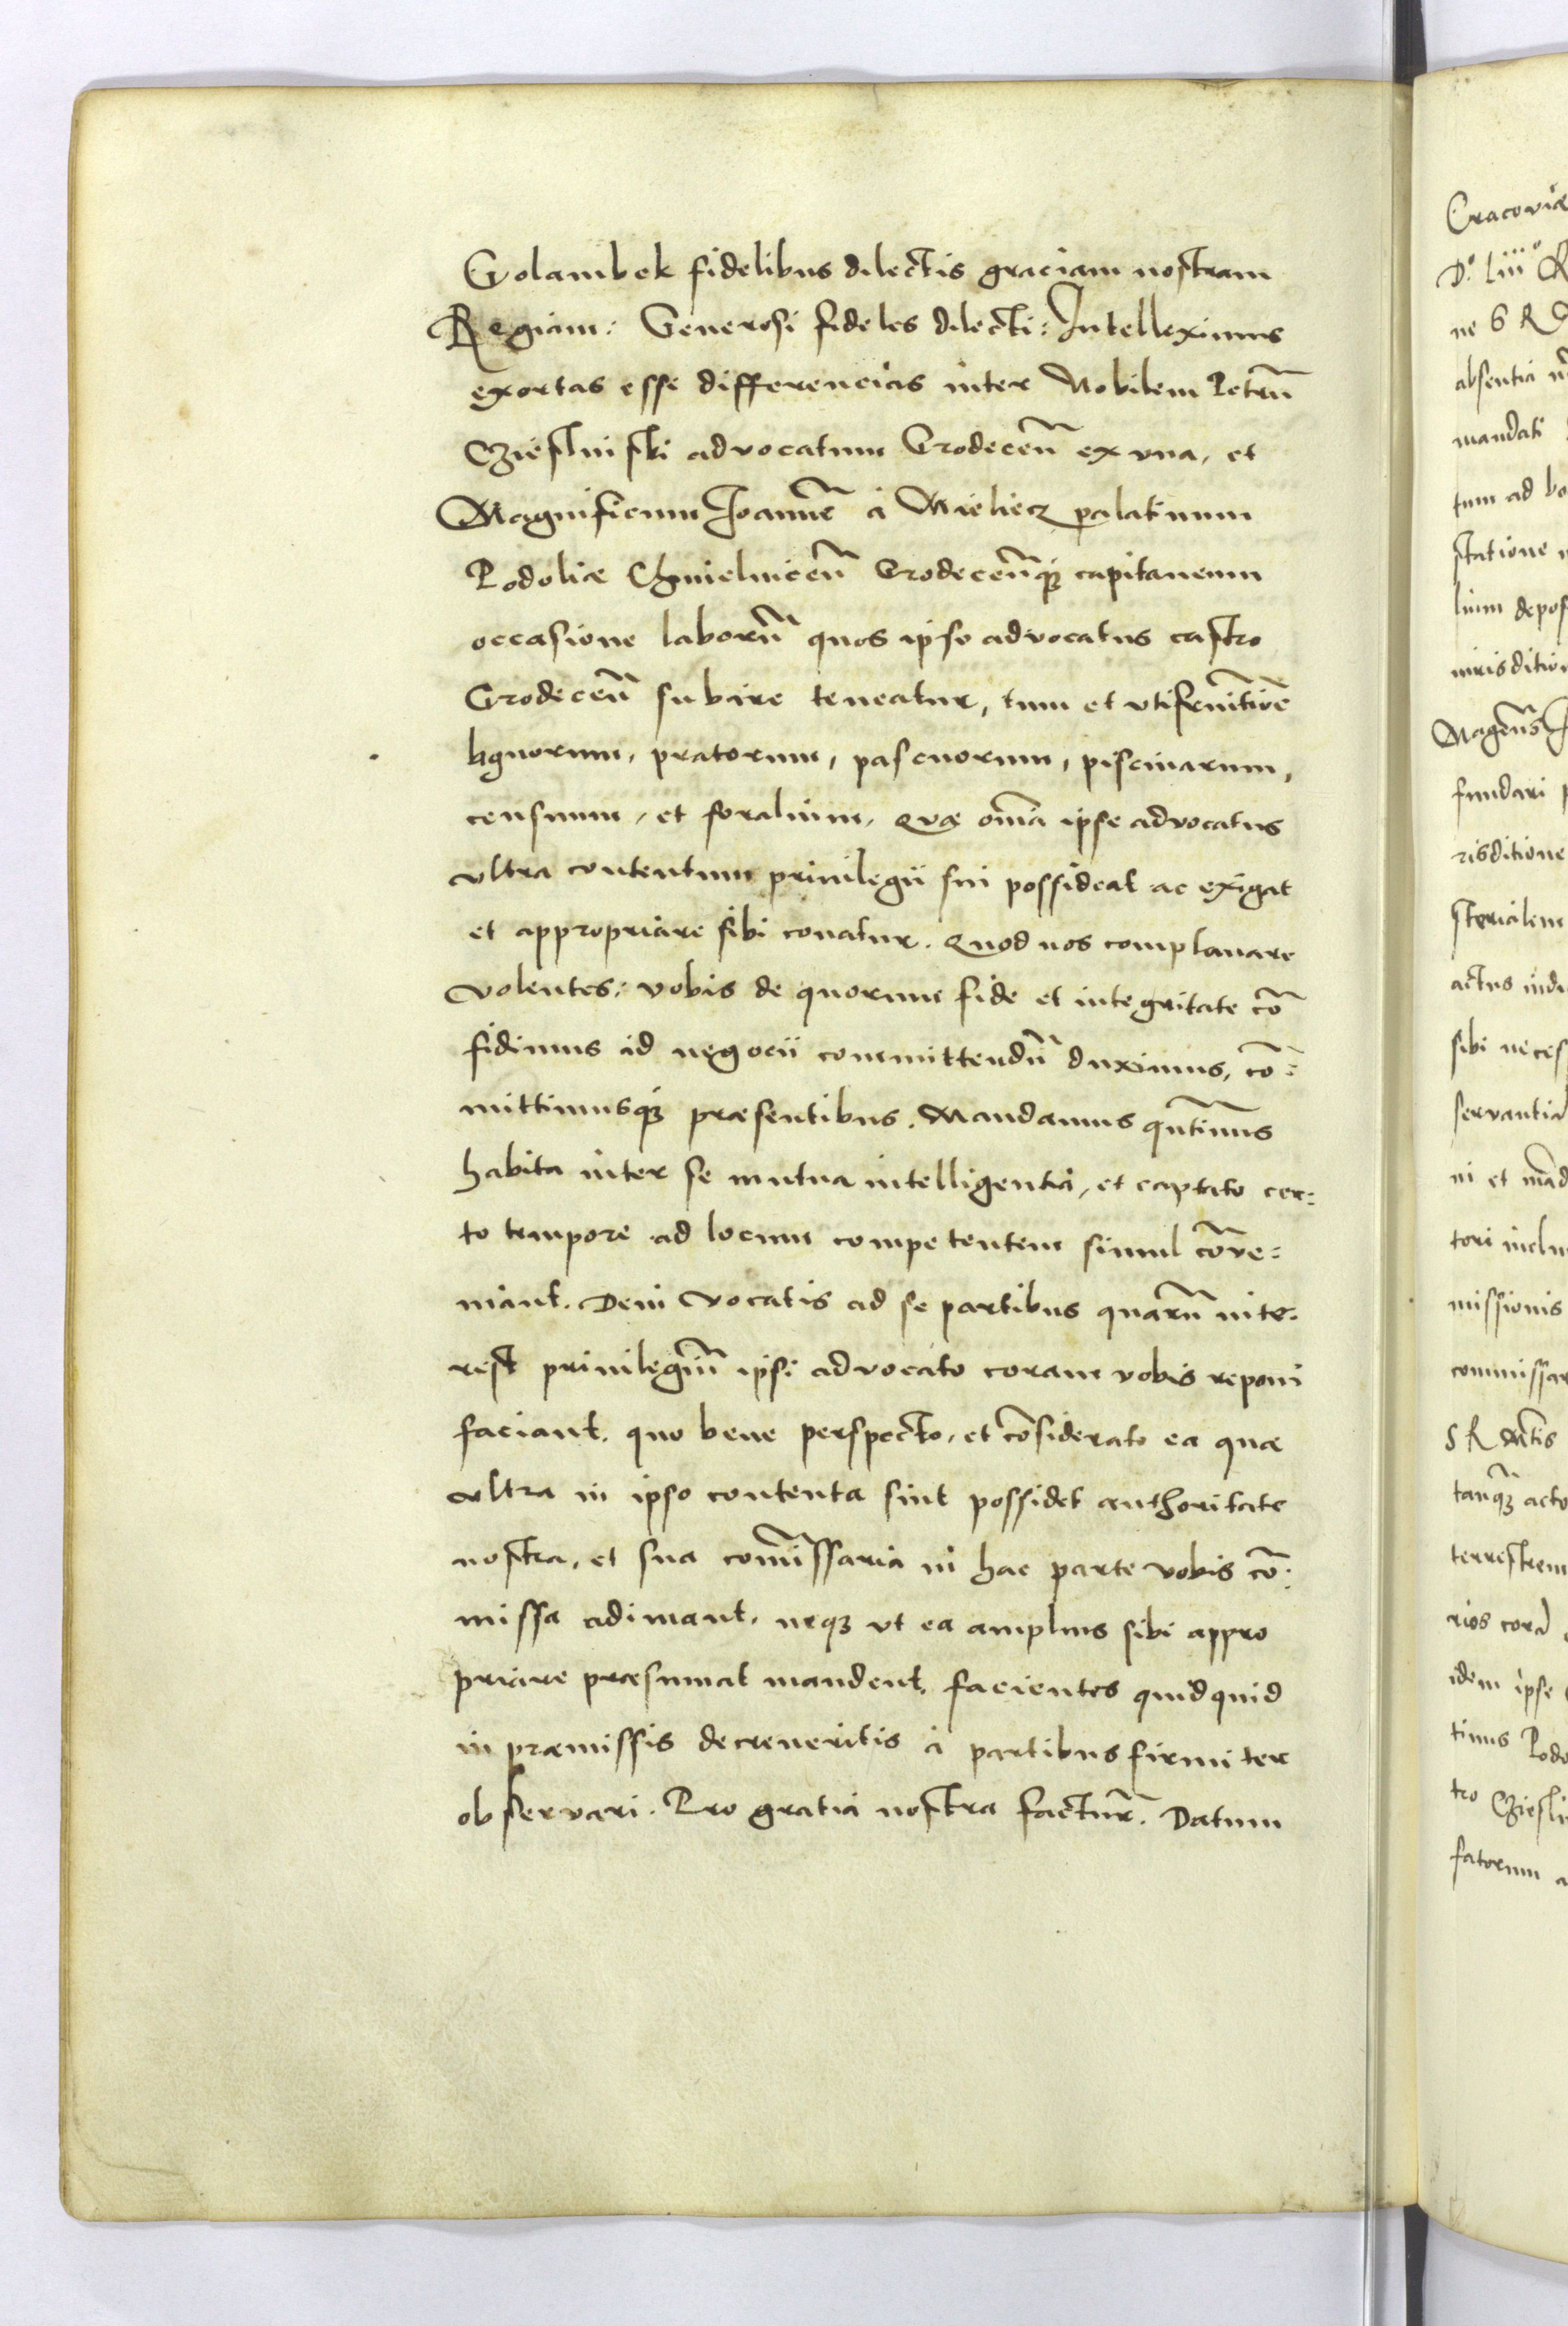 Golambek fidelibus dilectis graciam nostram
Regiam: Generosi fideles dilecti: Intelleximus
exortas esse differencias inter Nobilem Petrū
advocatum Grodeceñ ex vna, et
Magnificum Joannē à Mieliecz palatinum
Podoliæ Chmielniceñ Grodeceñq3 capitaneum
occasione laborū quos ipse advocatus castro
Grodeceñ subire teneatur, tum et vtifruitiōe
lignorum, pratorum, pascuorum, piscinarum,
censuum, et foralium, Quæ om̄ia ipse advocatus
vltra contentum priuilegii sui possideat ac exigat
et appropriare sibi conatur. Quod nos complanare
Volentes: vobis de quorum fide et integritate cō
fidimus id negocii committendū duximus, cō:
mittimusq3 præsentibus. Mandamus qūtinus
habita inter se mutua intelligentia, et captato cer:
to tempore ad locum competentem simul cōue:
niant. Dein Vocatis ad se partibus quarū inte:
rest priuilegiū ipsi advocato coram vobis reponi
faciant, quo bene perspecto, et cōsiderato ea quæ
vltra in ipso contenta sint possidet authoritate
nostra, et sua com̄issaria in hac parte vobis cō:
missa adimant, neq3 vt ea amplius sibi appro
priare præsumat mandent, facientes quidquid
in præmissis decreueritis à partibus firmiter
observari. Pro gratia nostra factur̄. Datum
Cracoviæ
Dº. liiiº
ne S R
absentia
mandati
tum ad bo
statione
lium depos
iurisdition
Magcūs J
fundari
risditione
sterialem
actus iudi
sibi neces
servantia
ni et mād
tori inclu
missionis
commissar
S R Mtis
tanq3 acto
terrestrem
rios corā
idem ipse
tinus Podo
tro
fatorum